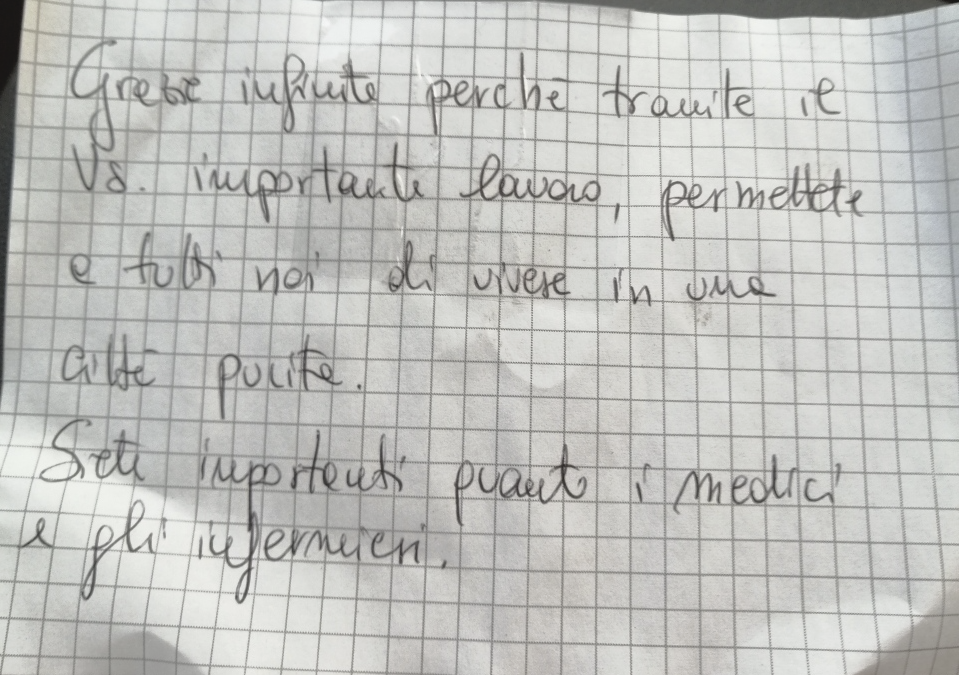 Grazie infinite perché tramite il
Vs. importante lavoro, permettete
a tutti noi di vivere in una
città pulita.
Siete importanti quanto i medici
e gli infermieri.